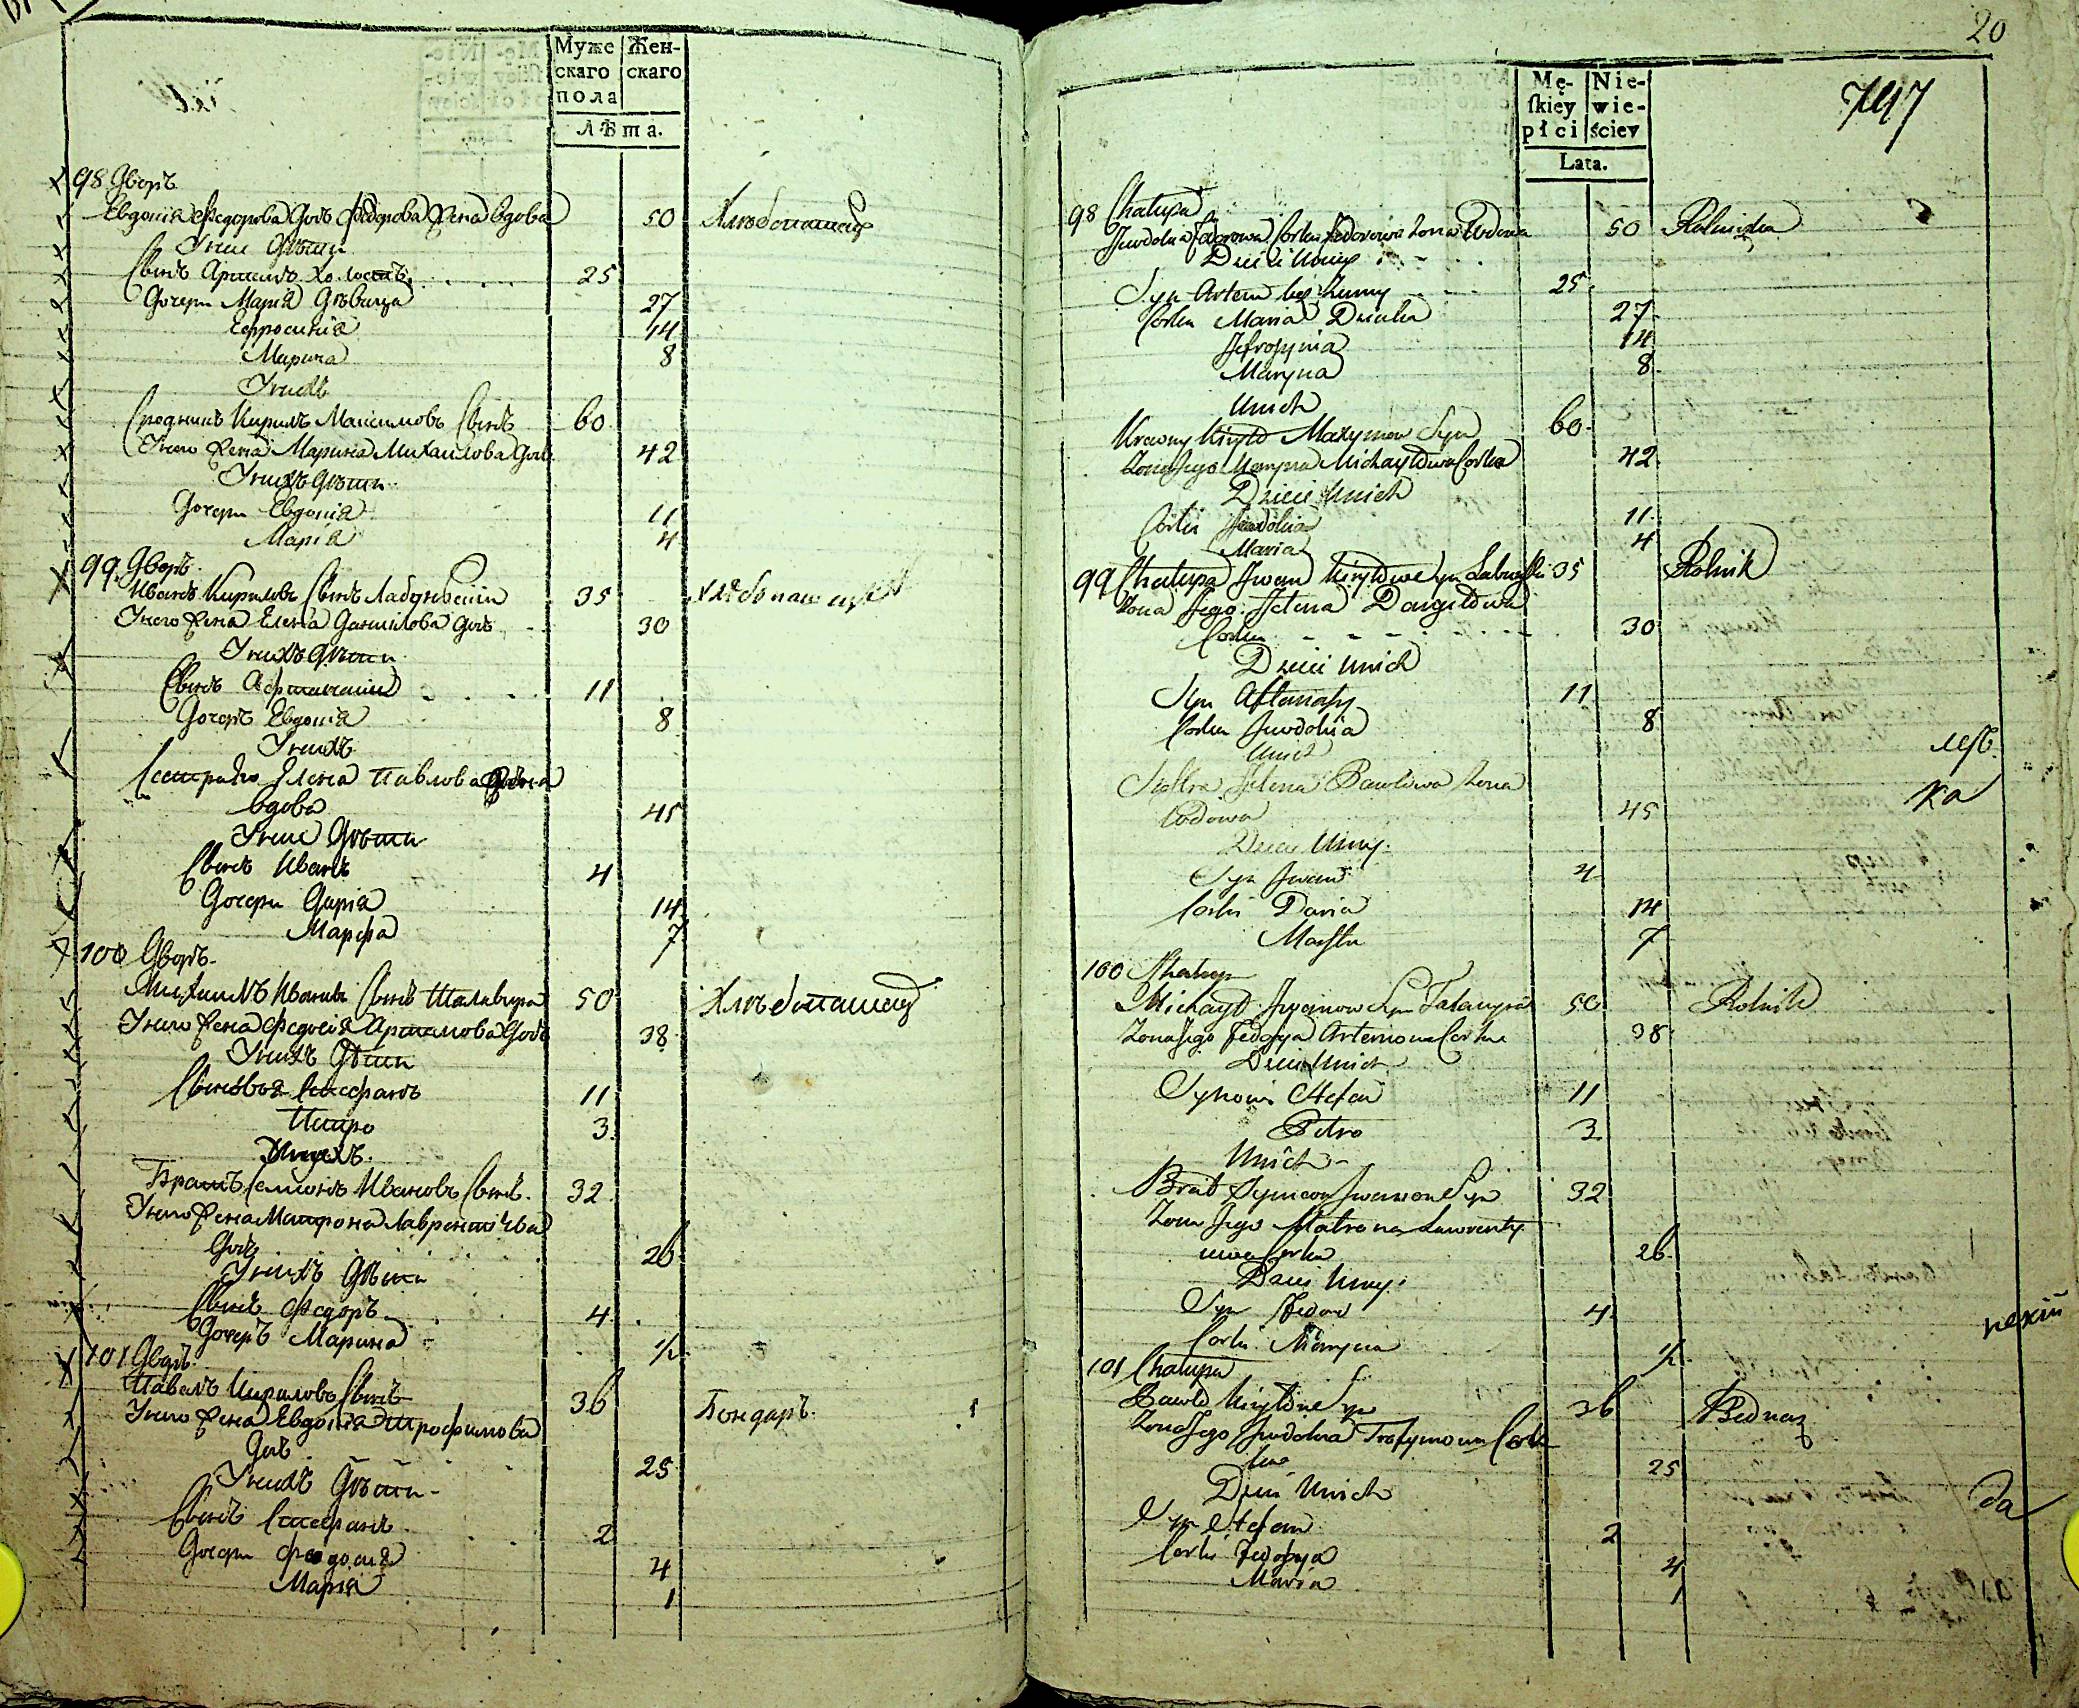 Муже Жен-
скаго скаго
пола
Лѣта.
98 Дворъ
Евдокія Федорова Дочь Федорова Жена вдова 50 Хлѣбопашецъ
У нее Дѣти
Сынъ Артемъ холостъ 25
Дочери Марія Дѣвица 27
Ефросинія 14
Марина 8
У нихъ
Сродникъ Кирилъ Максимовъ Сынъ 60
У него Жена Марина Михайлова Дочь 42
У нихъ Дѣти
Дочери Евдокія 11
Марія 4
99 Дворъ
Иванъ Кириловъ Сынъ 35 Хлѣбопашецъ
У него Жена Елена Данилова Дочь 30
У нихъ Дѣти
Сынъ Афтанасій 11
Дочерь Евдокія 8
У нихъ
Сестра Елена Павлова Жена
вдова 45
У нее Дѣти
Сынъ Иванъ 4
Дочери Дарія 14
Марфа 7
100 Дворъ
Михайлъ Ивановъ Сынъ 50 Хлѣбопашецъ
У него Жена Федосія Артемова Дочь 38
У нихъ Дѣти
Сыновья Стефанъ 11
Петро 3
У нихъ
Братъ Семіонъ Ивановъ Сынъ 32
У него Жена Матрона Лаврентіева
Дочь 26
У нихъ Дѣти
Сынъ Федоръ 4
Дочерь Марина 1/2
101 Дворъ
Павелъ Кириловъ Сынъ 36 Бондаръ
У него Жена Евдокія Трофимова
Дочь 25
У нихъ Дѣти
Сынъ Стефанъ 2
Дочери Феодосія 4
Марія 1
20
Mę- Nie-
ſkiey wie-
płci ściey
Lata.
98 Chałupa
Jewdokia Fedorowa Corka Fedorowa Zona Wdowa 50 Rolniczka
Dzieci Uniey
Syn Artem bez Zenny 25
Corki Maria Dziewka 27
Jefrosynia 14
Maryna 8
Unich
Krewny Kiryło Maxymow Syn 60
Zona Jego Maryna Michayłowa Corka 42
Dzieci Unich
Corki Jewdokia 11
Maria 4
99 Chałupa Jwan Kiryłow Syn 35 Rolnik
Zona Jego Jelena Danyiłowa
Corka 30
Dzieci Unich
Syn Aftanasy 11
Corka Jewdokia 8
Unich
Siostra Jelena Pawłowa Zona
Wdowa 45
Dzieci Uniey
Syn Jwan 4
Corki Daria 14
Marfa 7
100 Chałupa
Michayło Jwanow Syn 50 Rolnik
Zona Jego Fedosya Artemowa Corka 38
Dzieci Unich
Synowie Stefan 11
Petro 3
Unich
Brat Symeon Jwanow Syn 32
Zona Jego Matrona Lawrenty
iowa Corka 26
Dzieci Uniey
Syn Fedor 4
Corka Maryna 1/2
101 Chałupa
Pawło Kiryłow Syn 36 Bednarz
Zona Jego Jewdokia Trofymowa Cor
ka 25
Dzieci Unich
Syn Stefan 2
Corki Fedosya 4
Maria 1